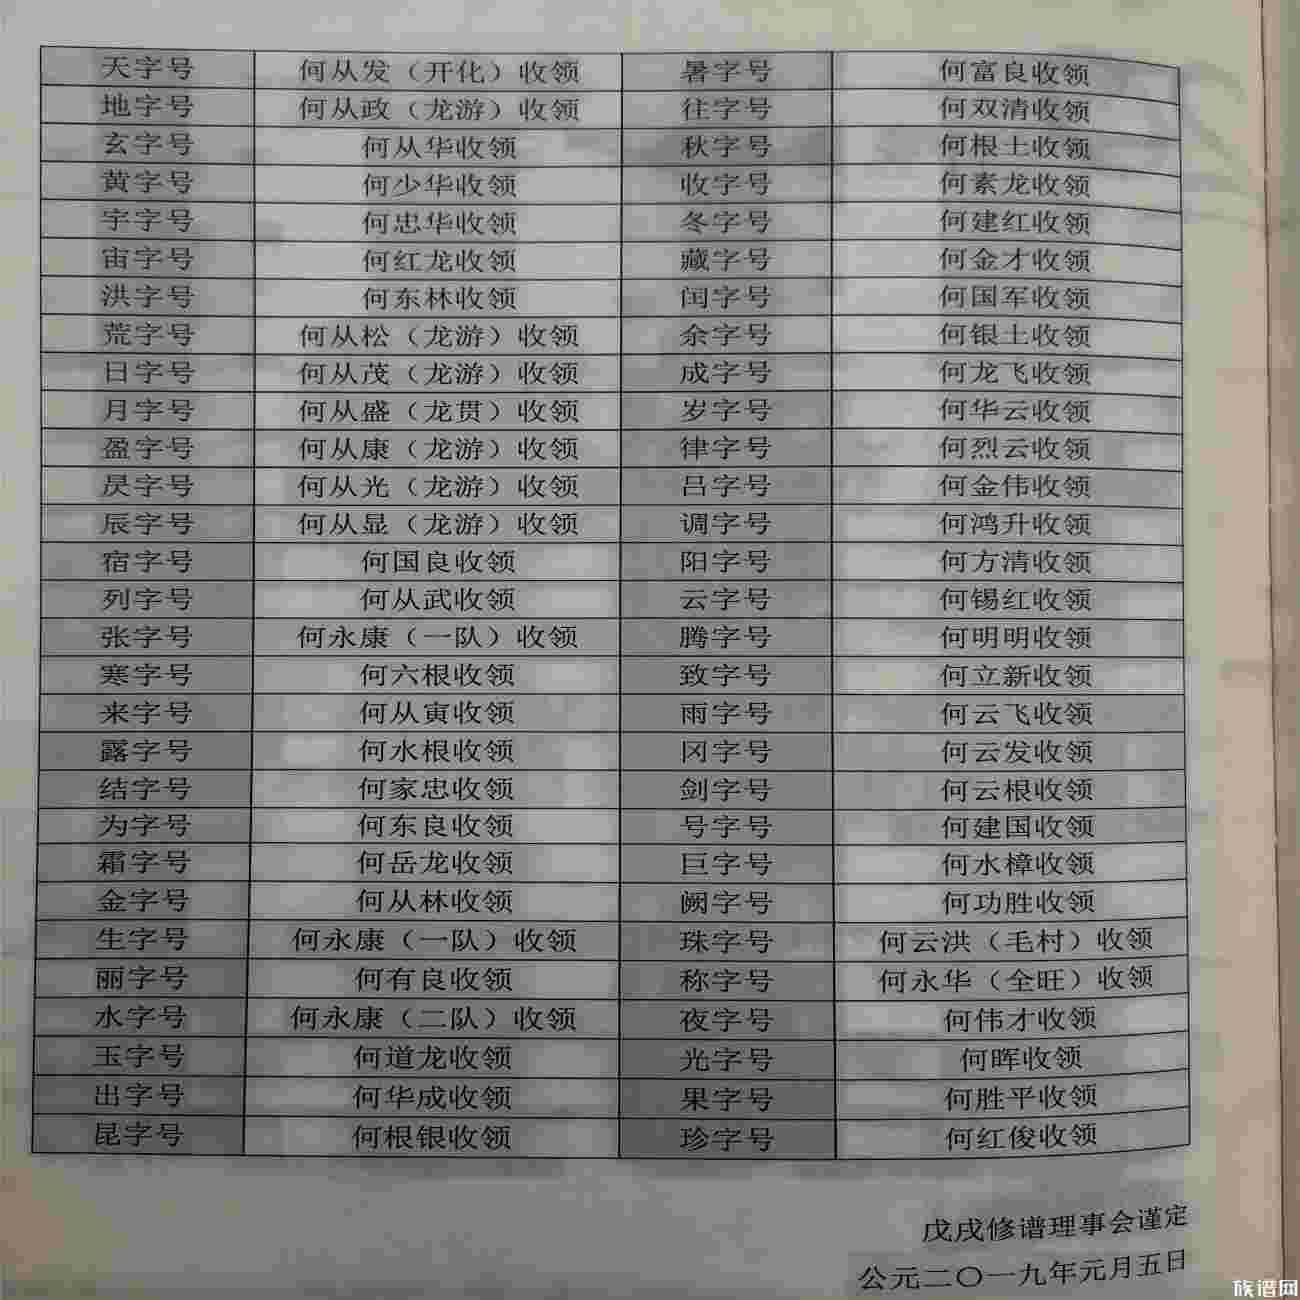 天字号 何从发（开化）收领 暑字号 何富良收领
地字号 何从政（龙游）收领 往字号 何双清收领
玄字号 何从华收领 秋字号 何根土收领
黄字号 何少华收领 收字号 何素龙收领
宇字号 何忠华收领 冬字号 何建红收领
宙字号 何红龙收领 藏字号 何金才收领
洪字号 何东林收领 闰字号 何国军收领
荒字号 何从松（龙游）收领 余字号 何银土收领
日字号 何从茂（龙游）收领 成字号 何龙飞收领
月字号 何从盛（龙贯）收领 岁字号 何华云收领
盈字号 何从康（龙游）收领 律字号 何烈云收领
昃字号 何从光（龙游）收领 吕字号 何金伟收领
辰字号 何从显（龙游）收领 调字号 何鸿升收领
宿字号 何国良收领 阳字号 何方清收领
列字号 何从武收领 云字号 何锡红收领
张字号 何永康（一队）收领 腾字号 何明明收领
寒字号 何六根收领 致字号 何立新收领
来字号 何从寅收领 雨字号 何云飞收领
露字号 何水根收领 冈字号 何云发收领
结字号 何家忠收领 剑字号 何云根收领
为字号 何东良收领 号字号 何建国收领
霜字号 何岳龙收领 巨字号 何水樟收领
金字号 何从林收领 阙字号 何功胜收领
生字号 何永康（一队）收领 珠字号 何云洪（毛村）收领
丽字号 何有良收领 称字号 何永华（全旺）收领
水字号 何永康（二队）收领 夜字号 何伟才收领
玉字号 何道龙收领 光字号 何晖收领
出字号 何华成收领 果字号 何胜平收领
昆字号 何根银收领 珍字号 何红俊收领
戊戌修谱理事会谨定
公元二〇一九年元月五日
族谱网